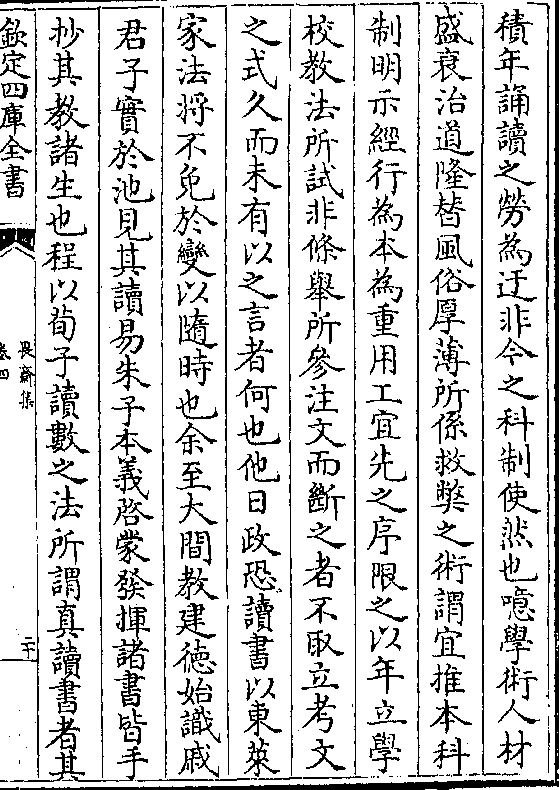 積年誦讀之勞為迂非今之科制使然也噫學術人材
盛衰治道隆替風俗厚薄所係救獘之術謂宜推本科
制明示經行為本為重用工宜先之序限之以年立學
校教法所試非條舉所參注文而斷之者不取立考文
之式久而未有以之言者何也他日政恐讀書以東萊
家法將不免於變以隨時也余至大間教建徳始識戚
君子實於池見其讀易朱子本義啓蒙發揮諸書皆手
抄其教諸生也程以荀子讀數之法所謂真讀書者其
欽定四庫全書
畏齋集
卷四
二十